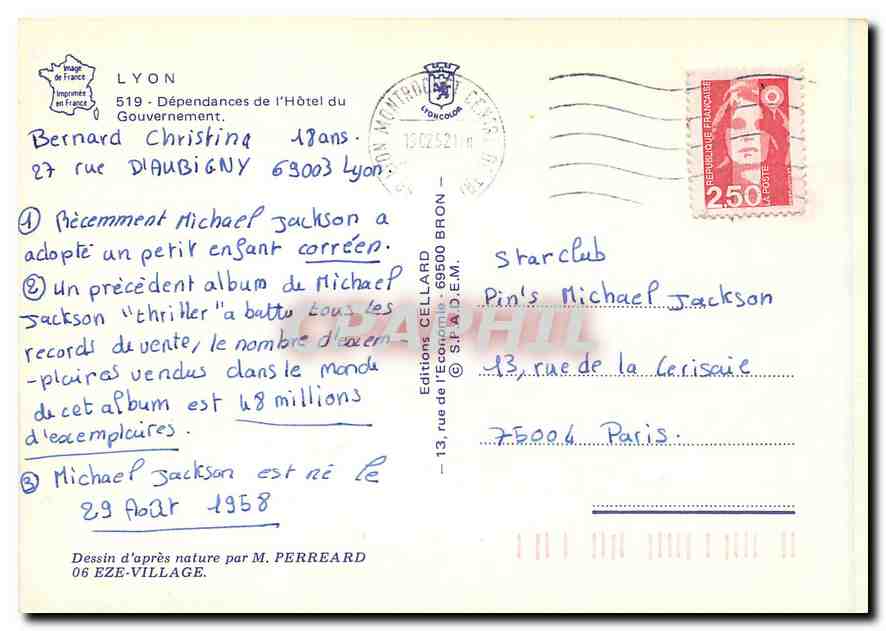 Image
de France
Imprimée
en France
LYON
519 - Dépendances de l'Hôtel du
Gouvernement.
Bernard Christina 18 ans.
27 rue D'AUBIGNY 69003 Lyon
① Récemment Michael Jackson a
adopté un petit enfant corréen.
② Un précédent album de Michael
Jackson "thriller" a battu tous les
records de vente, le nombre d'exem-
-plaires vendus dans le monde
de cet album est 48 millions
d'exemplaires.
③ Michael Jackson est né le
29 Août 1958
Dessin d'après nature par M. PERREARD
06 EZE-VILLAGE.
LYONCOLOR
Editions CELLARD
- 13, rue de l'Economie - 69500 BRON -
© S.P.A.D.E.M.
LYON MONTROCHET
RÉPUBLIQUE FRANÇAISE
2,50
LA POSTE
Starclub
Pin's Michael Jackson
13, rue de la Cerisaie
75004 Paris.
CPAPHIL